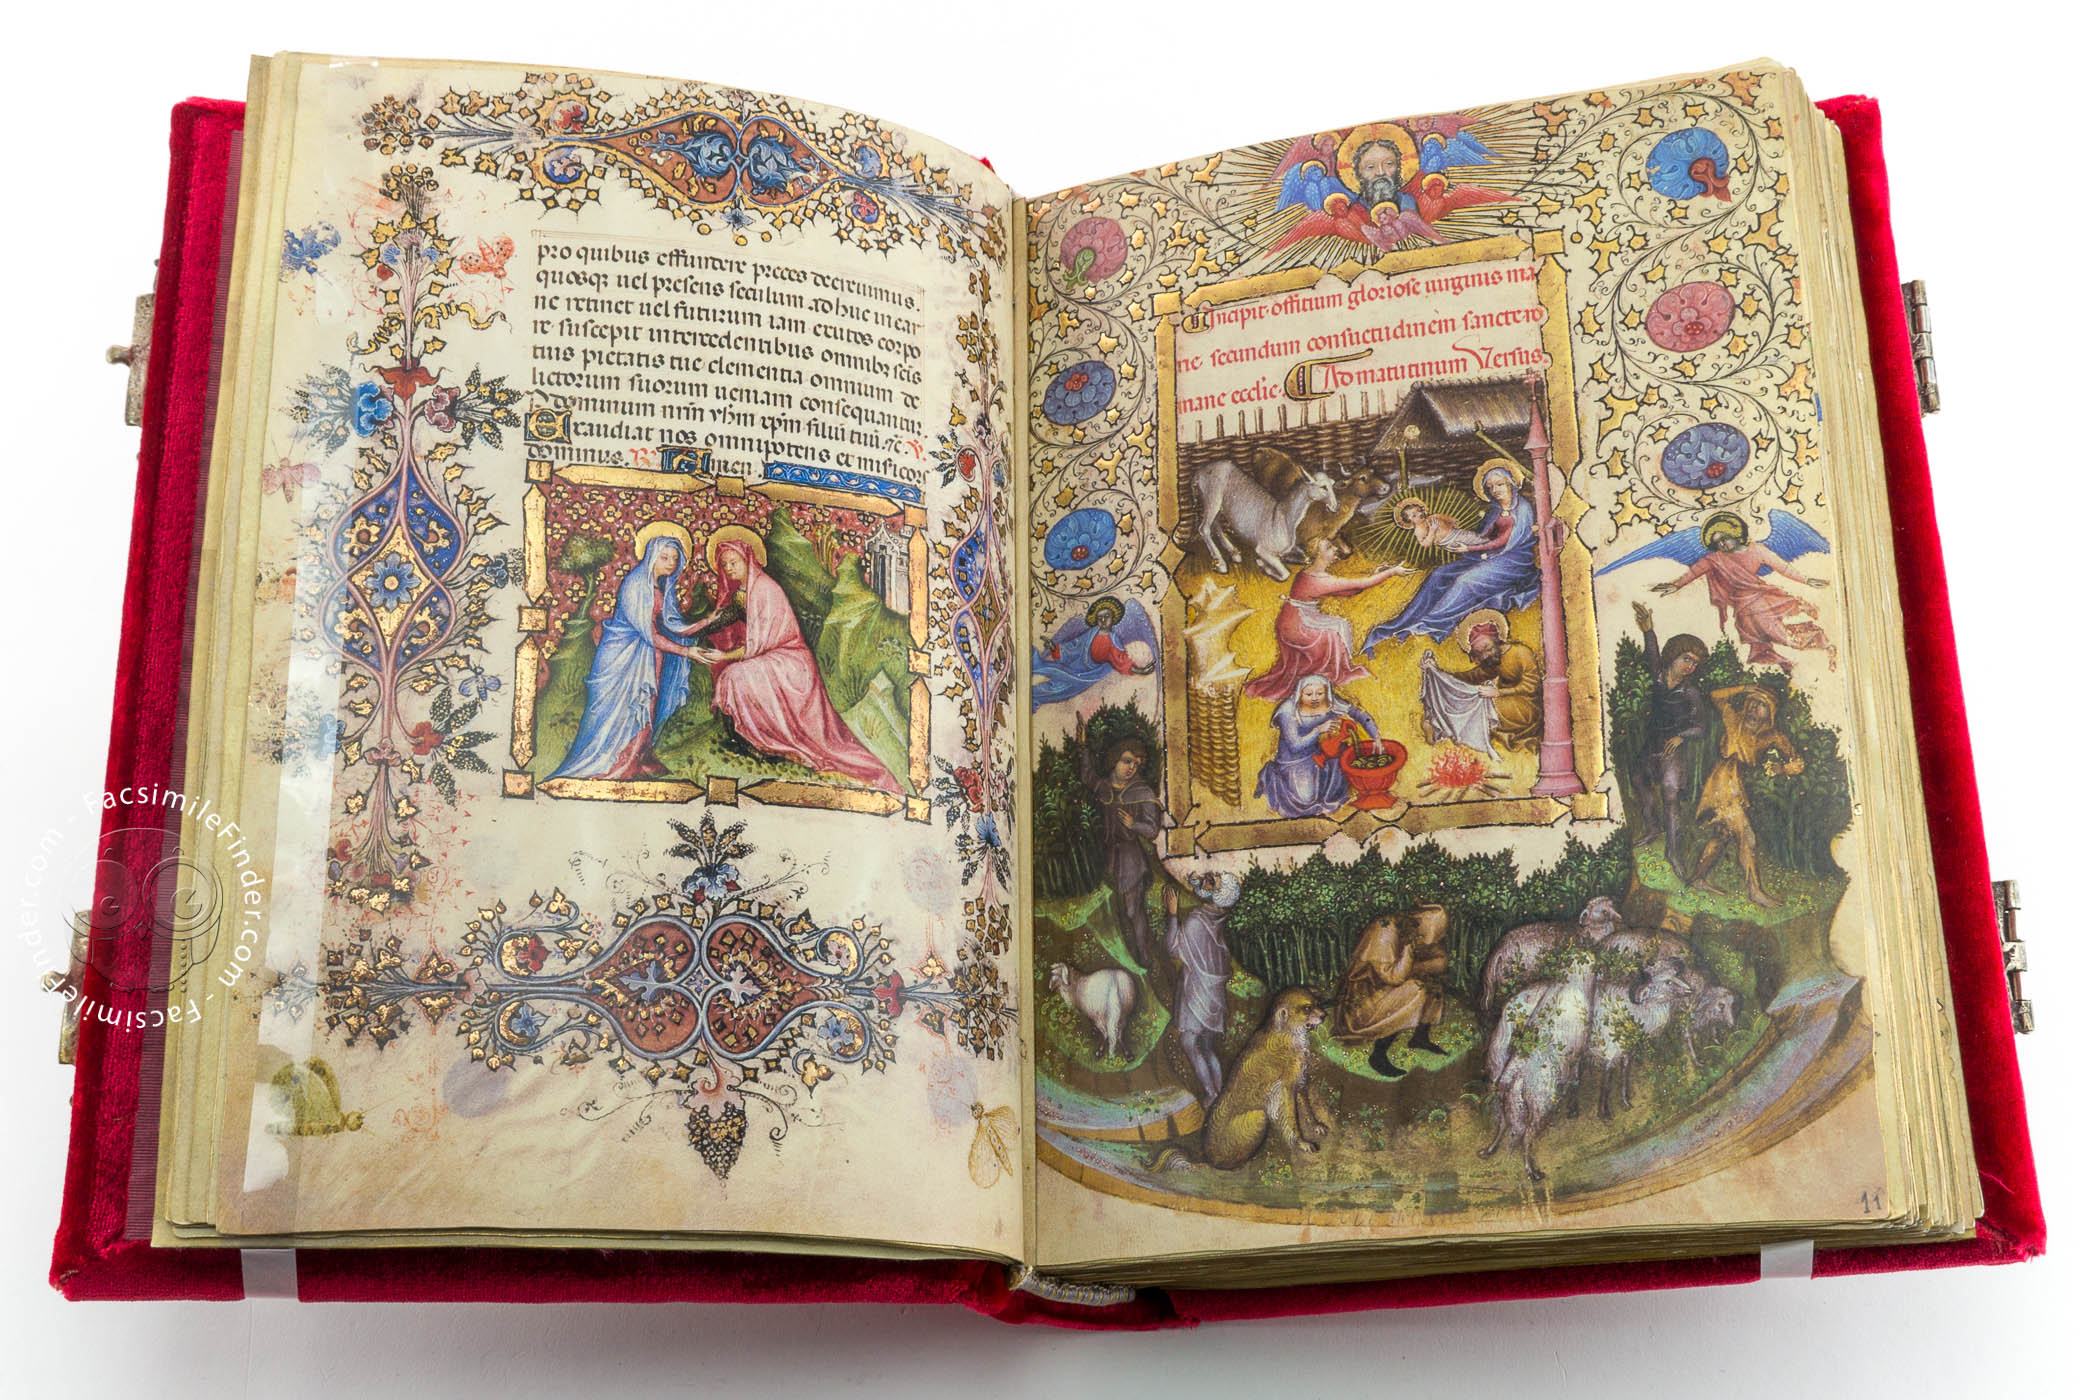 pro quibus effundere preces decreuimus.
quosq; uel presens seculum ad huc in car
ne retinet uel futurum iam exutos corpo
re suscepit intercedentibus omnibz scis
tuis pietatis tue clementia omnium de
lictorum suorum ueniam consequantur
dominum nrm yhm xpm filiu tuu
Exaudiat nos omnipotens et misicor
dominus. R. Amen.
Incipit offitium gloriose uirginis ma
rie secundum consuetudinem sancte ro
mane ecclie. Ad matutinum Versus.
11
FacsimileFinder.com - FacsimileFinder.com - FacsimileFinder.com